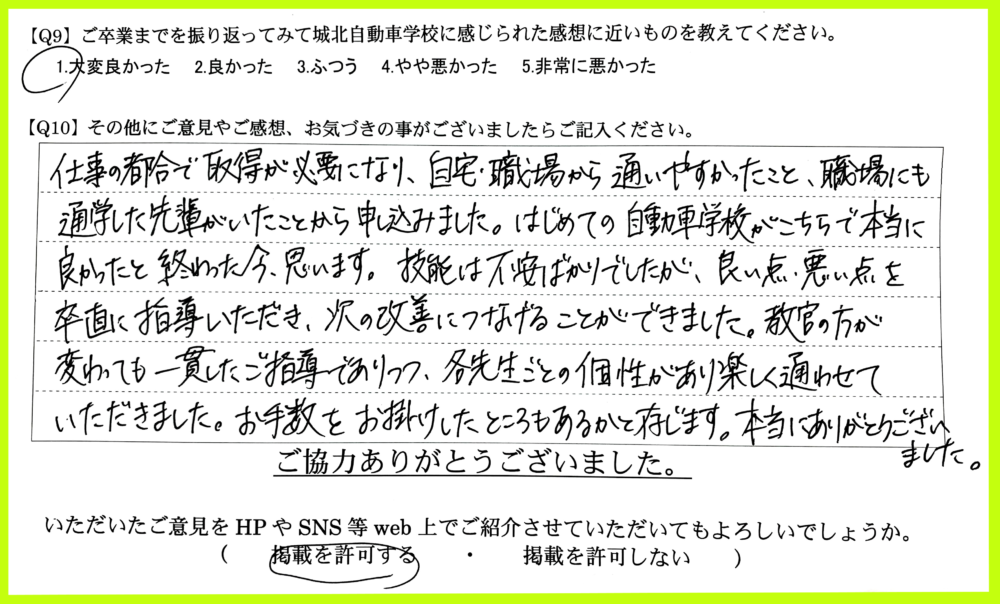 【Q9】ご卒業までを振り返ってみて城北自動車学校に感じられた感想に近いものを教えてください。
1.大変良かった 2.良かった 3.ふつう 4.やや悪かった 5.非常に悪かった
【Q10】その他にご意見やご感想、お気づきの事がございましたらご記入ください。
仕事の都合で取得が必要になり、自宅・職場から通いやすかったこと、職場にも
通学した先輩がいたことから申し込みました。はじめての自動車学校がこちらで本当に
良かったと終わった今、思います。技能は不安ばかりでしたが、良い点・悪い点を
卒直に指導いただき、次の改善につなげることができました。教官の方が
変わっても一貫したご指導でありつつ、各先生ごとの個性があり楽しく通わせて
いただきました。お手数をお掛けしたところもあるかと存じます。本当にありがとうござい
ました。
ご協力ありがとうございました。
いただいたご意見をHPやSNS等web上でご紹介させていただいてもよろしいでしょうか。
( 掲載を許可する ・ 掲載を許可しない )